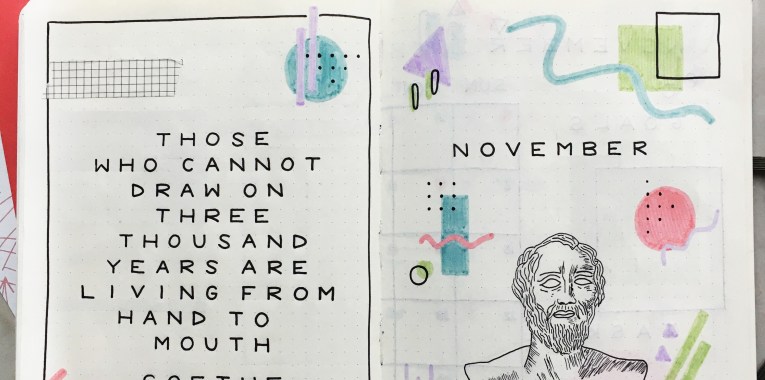 THOSE
WHO CANNOT
DRAW ON
THREE
THOUSAND
YEARS ARE
LIVING FROM
HAND TO
MOUTH
GOETHE
NOVEMBER